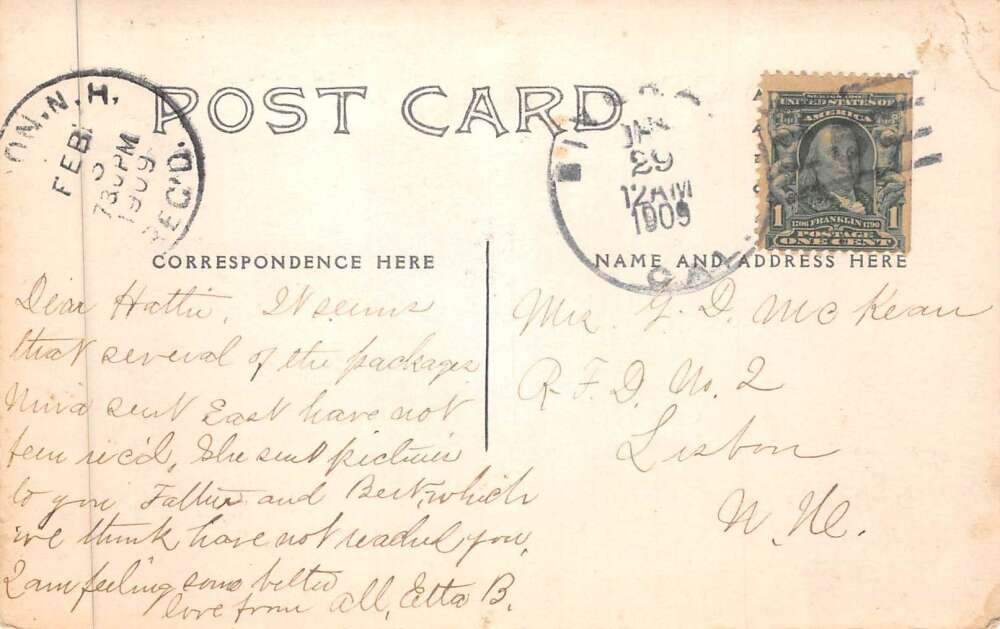 POST CARD
ON. N. H.
FEB
3
730PM
1909
REC'D.
JAN
29
12AM
1909
CAL.
SERIES 1902
UNITED STATES OF
AMERICA
1 1706 FRANKLIN 1790 1
POSTAGE
ONE CENT
CORRESPONDENCE HERE
NAME AND ADDRESS HERE
Dear Hattie, It seems
that several of the packages
Nina sent East have not
been rec'd, She sent pictures
to you Father and Bert, which
we think have not reached you,
I am feeling some better
love from all, Etta B.
Mrs. G. D. McKean
R. F. D. No. 2
Lisbon
N. H.